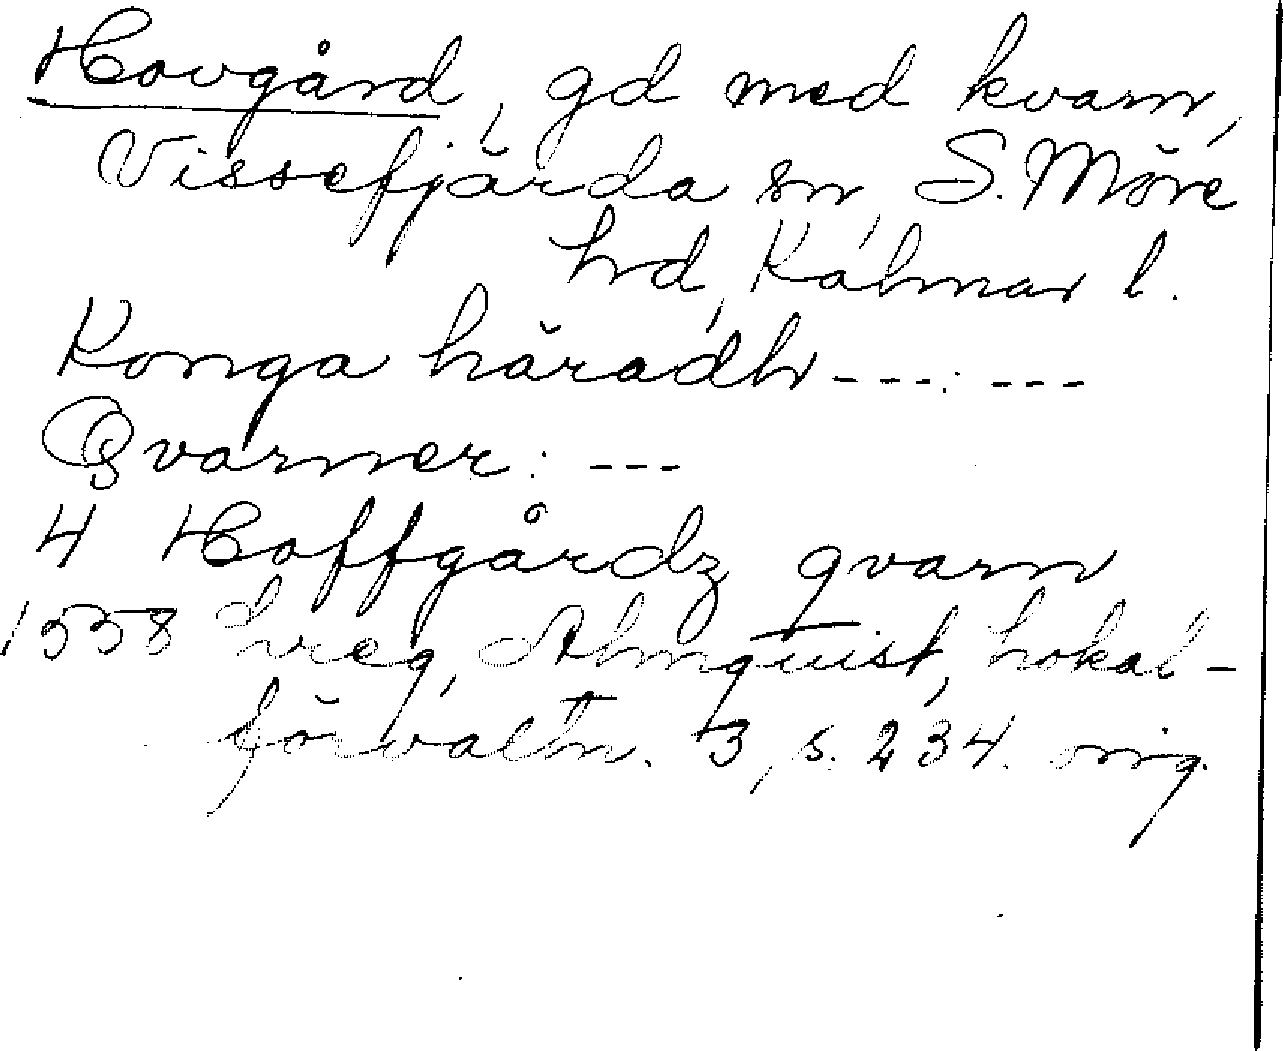 Hovgård, gd med kvarn,
Vissefjärda sn, S. Möre
hd, Kalmar l.
Konga häradh ---:---
Qvarner: ---
4 Hoffgårdz qvarn
1558 Almquist, Lokal-
förvaltn. 3, s. 234. orig.